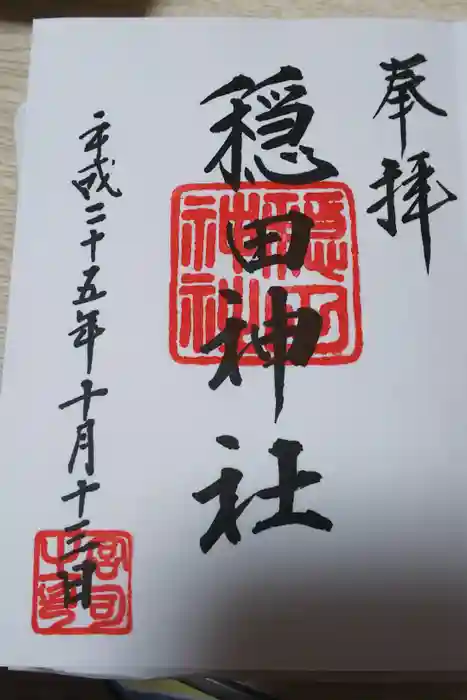 奉拝
穏田神社
平成二十五年十月十三日